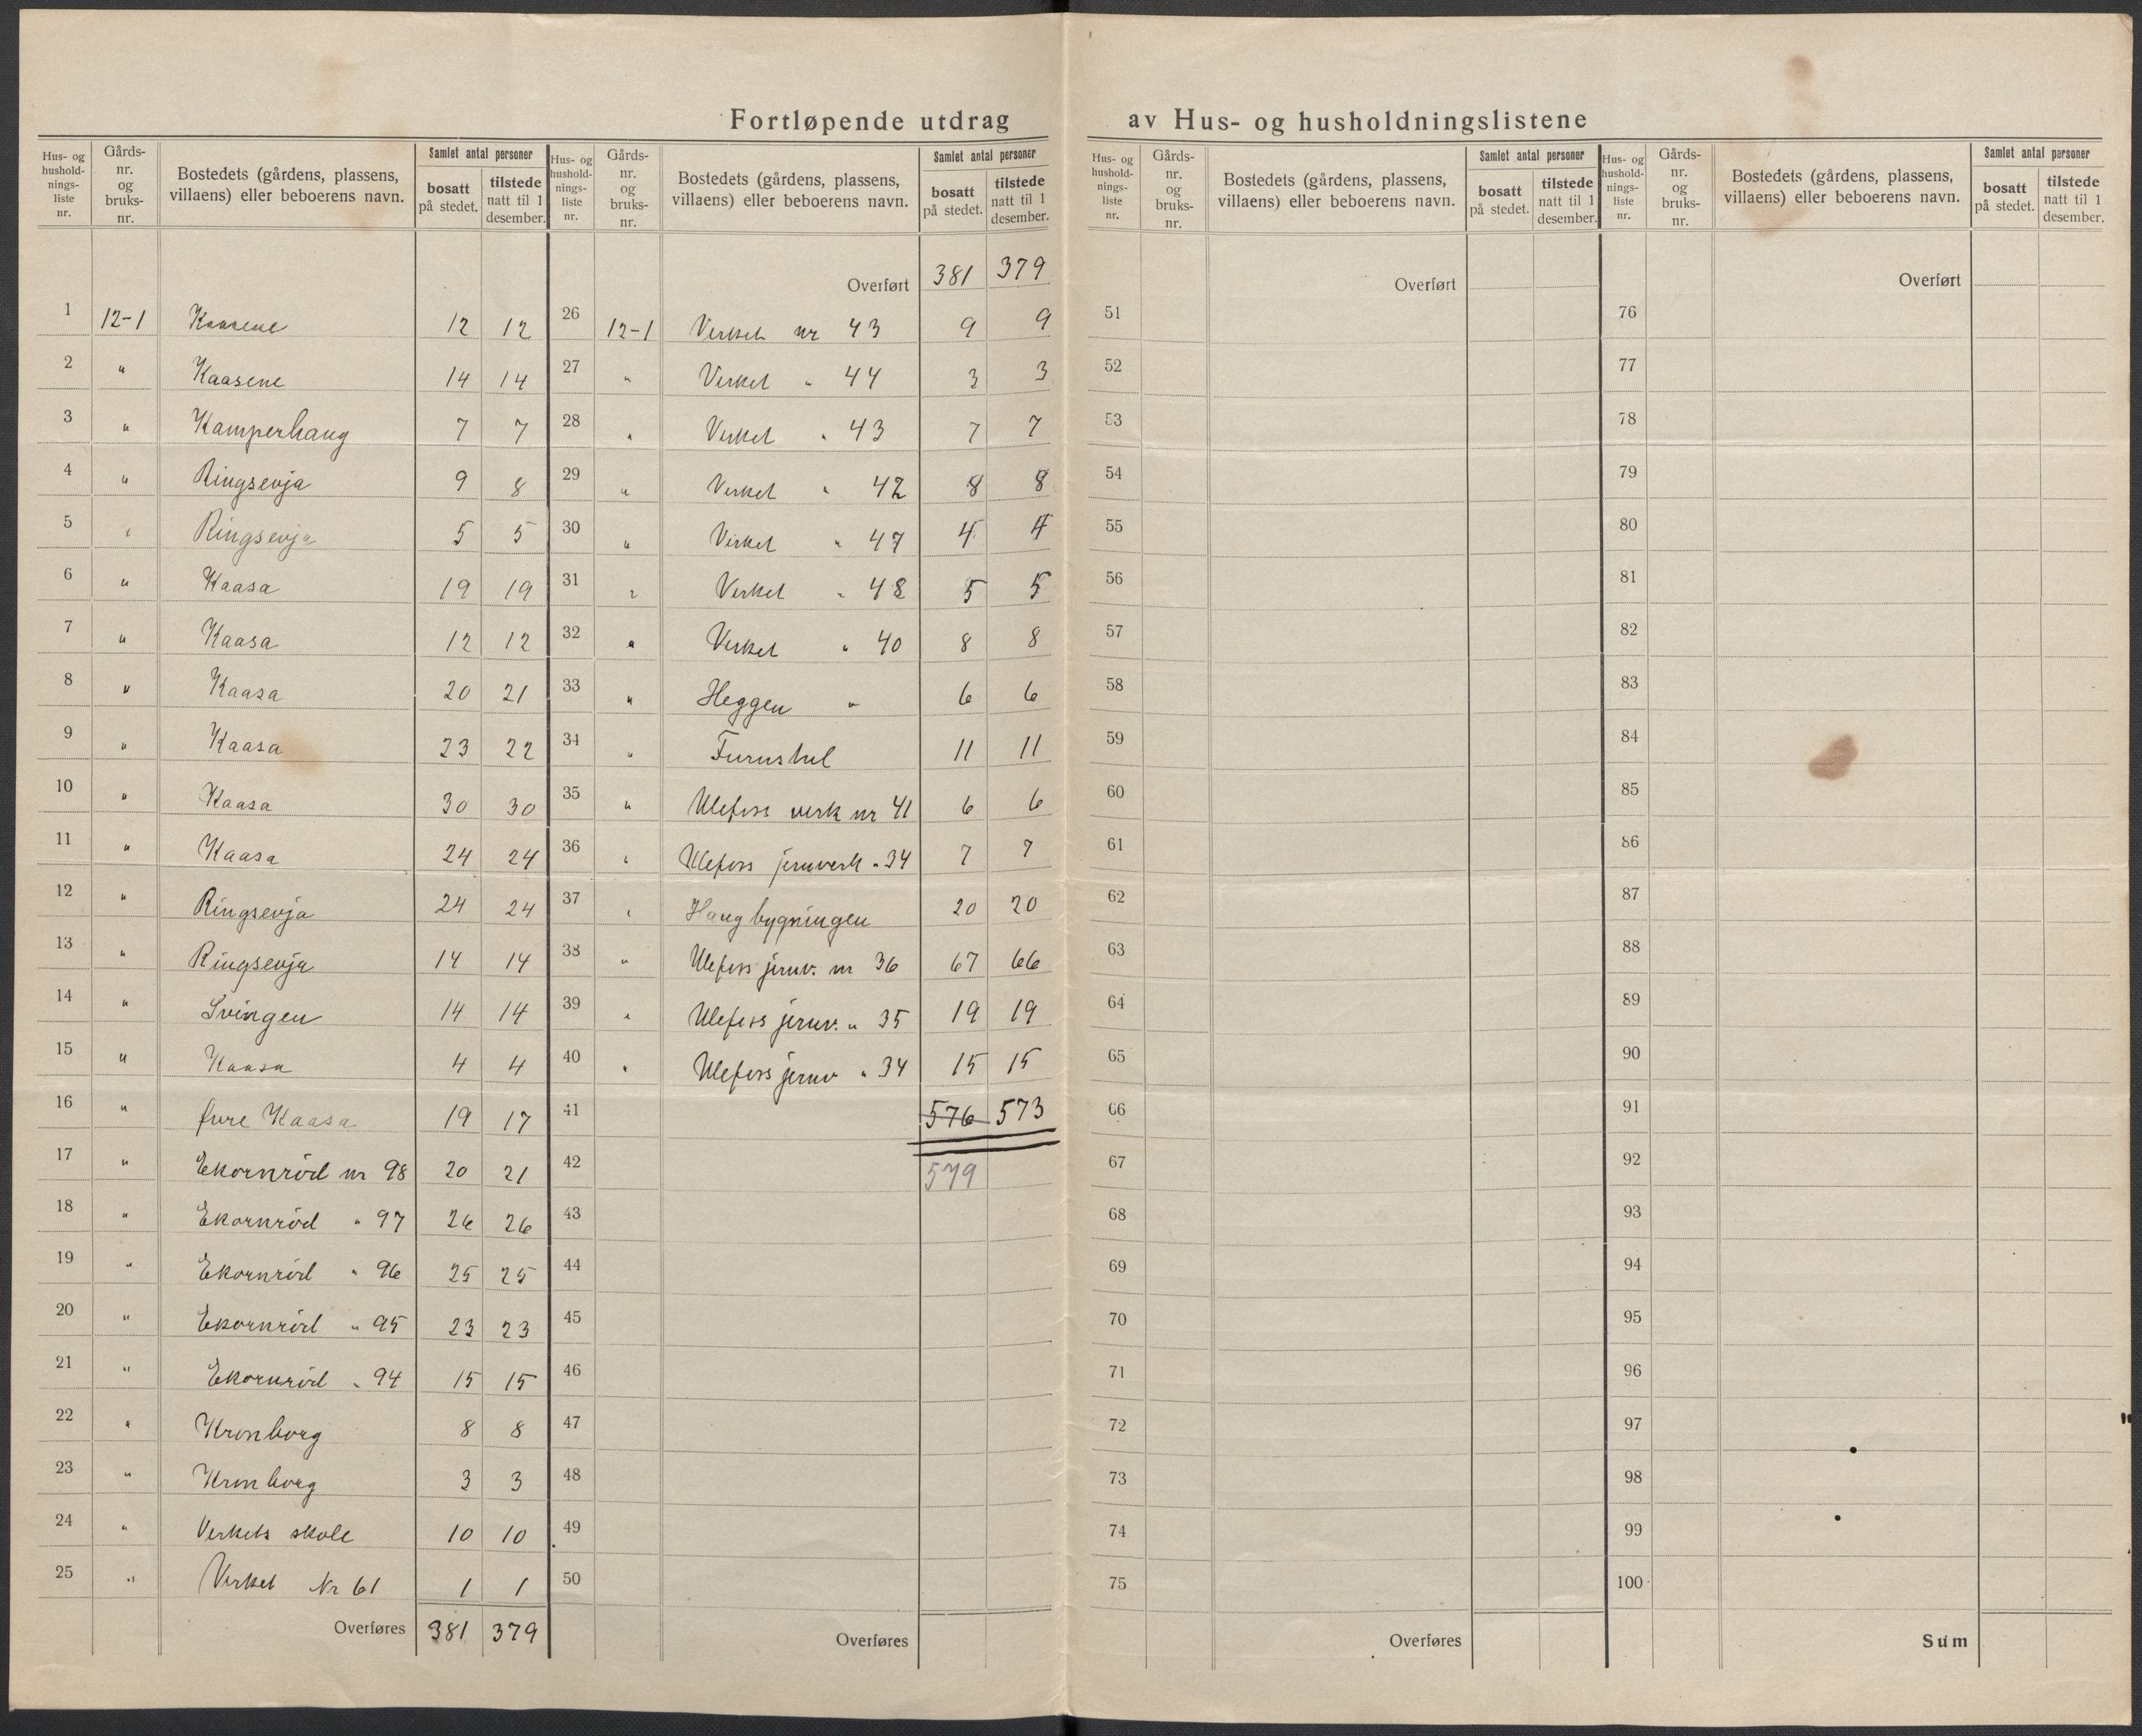 Fortløpende utdrag av Hus- og husholdningslistene
Hus- og hushold-nings-liste nr. Gårds-nr. og bruks-nr. Bostedets (gårdens, plassens, villaens) eller beboerens navn. Samlet antal personer bosatt på stedet. tilstede natt til 1 desember.
1 12-1 Kaasene 12 12
2 " Kaasene 14 14
3 " Kamperhaug 7 7
4 " Ringsevja 9 8
5 " Ringsevja 5 5
6 " Kaasa 19 19
7 " Kaasa 12 12
8 " Kaasa 20 21
9 " Kaasa 23 22
10 " Kaasa 30 30
11 " Kaasa 24 24
12 " Ringsevja 24 24
13 " Ringsevja 14 14
14 " Svingen 14 14
15 " Kaasa 4 4
16 " Kaasa 19 17
17 " Ekornröd nr 98 20 21
18 " Ekornröd " 97 26 26
19 " Ekornröd " 96 25 25
20 " Ekornröd " 95 23 23
21 " Ekornröd " 94 15 15
22 " Kronborg 8 8
23 " Kronborg 3 3
24 " Verkets skole 10 10
25 " Verket Nr 61 1 1
Overføres 381 379
Hus- og hushold-nings-liste nr. Gårds-nr. og bruks-nr. Bostedets (gårdens, plassens, villaens) eller beboerens navn. Samlet antal personer bosatt på stedet. tilstede natt til 1 desember.
Overført 381 379
26 12-1 Verket nr 43 9 9
27 " Verket " 44 3 3
28 " Verket " 43 7 7
29 " Verket " 42 8 8
30 " Verket " 47 4 4
31 " Verket " 48 5 5
32 " Verket " 40 8 8
33 " Heggen " 6 6
34 " Furustul 11 11
35 " Ulefoss verk nr 41 6 6
36 " Ulefoss jernverk " 34 7 7
37 " Haugbygningen 20 20
38 " Ulefoss jernv. nr 36 67 66
39 " Ulefoss jernv. " 35 19 19
40 " Ulefoss jernv " 34 15 15
41 576 573
42 579
43
44
45
46
47
48
49
50
Overføres
Hus- og hushold-nings-liste nr. Gårds-nr. og bruks-nr. Bostedets (gårdens, plassens, villaens) eller beboerens navn. Samlet antal personer bosatt på stedet. tilstede natt til 1 desember.
Overført
51
52
53
54
55
56
57
58
59
60
61
62
63
64
65
66
67
68
69
70
71
72
73
74
75
Overføres
Hus- og hushold-nings-liste nr. Gårds-nr. og bruks-nr. Bostedets (gårdens, plassens, villaens) eller beboerens navn. Samlet antal personer bosatt på stedet. tilstede natt til 1 desember.
Overført
76
77
78
79
80
81
82
83
84
85
86
87
88
89
90
91
92
93
94
95
96
97
98
99
100
Sum